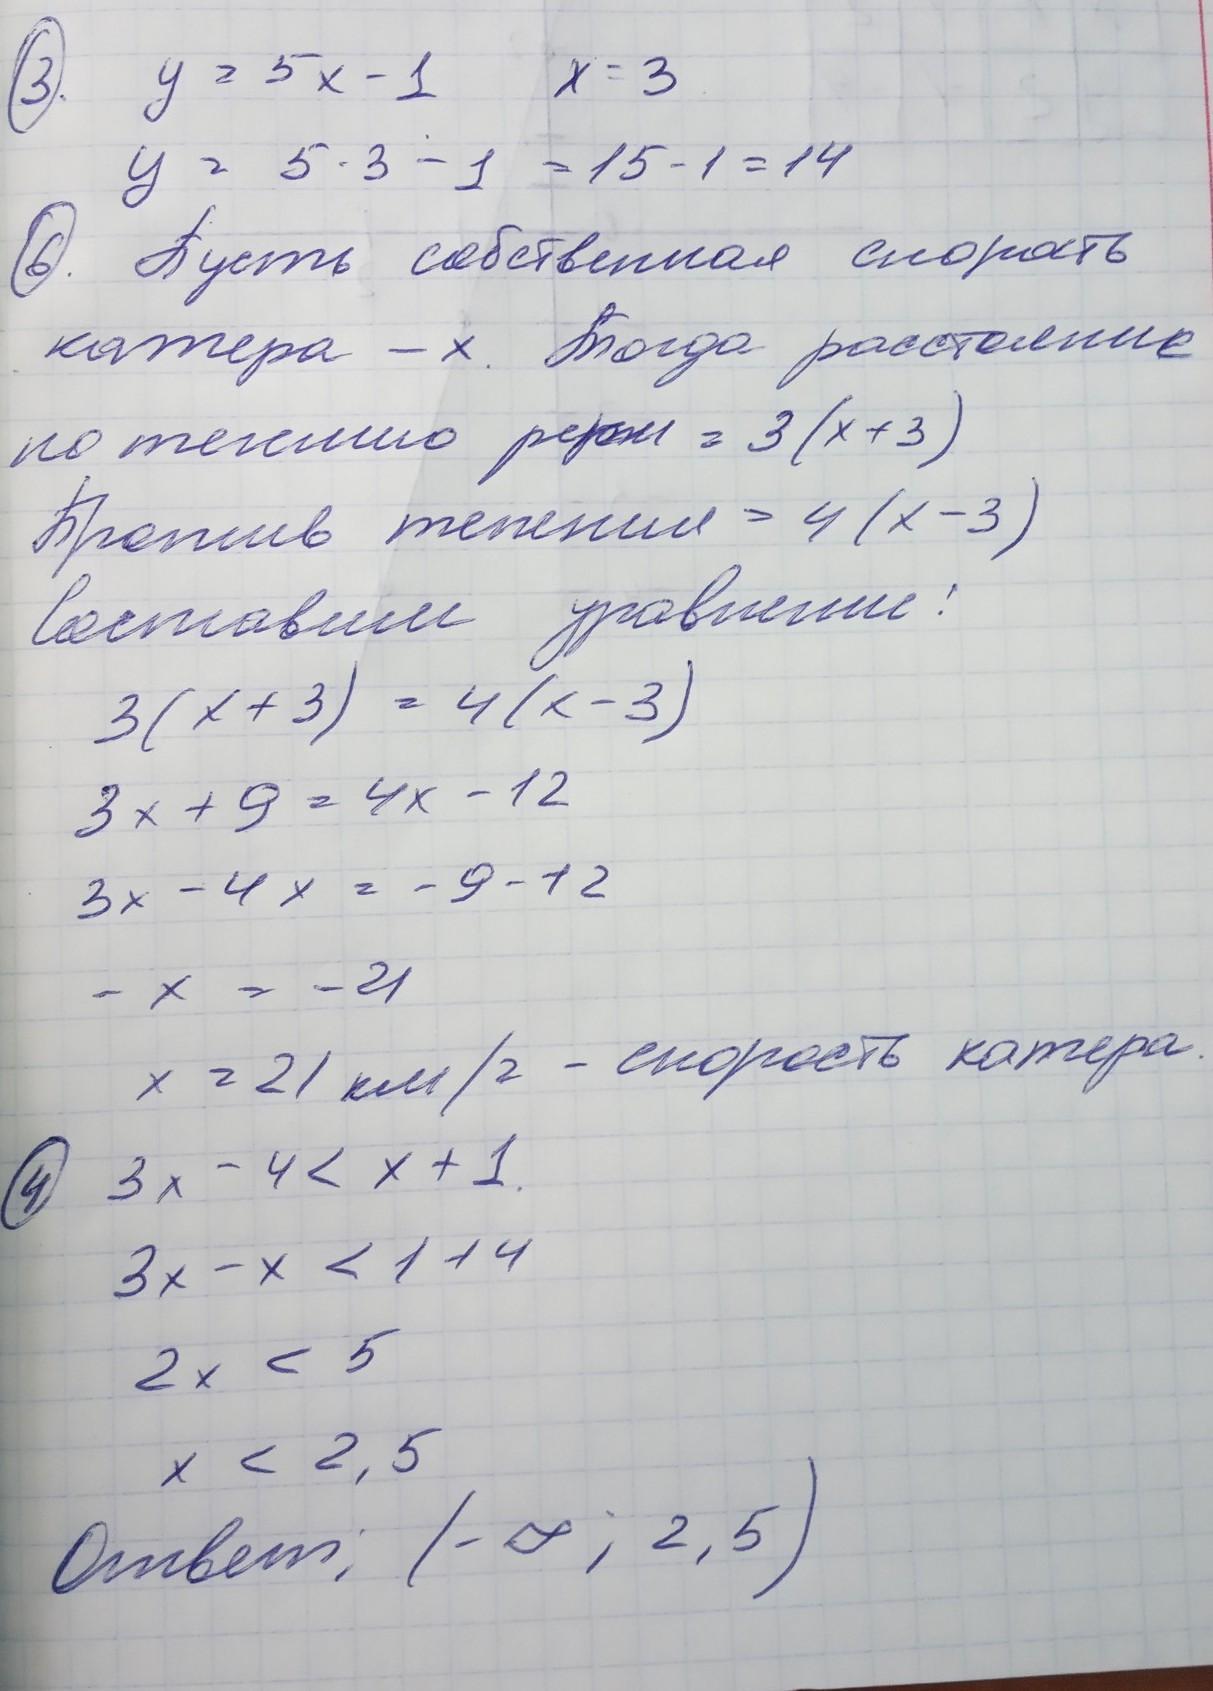 3. y = 5x - 1    x = 3
y = 5 · 3 - 1 = 15 - 1 = 14
6. Пусть собственная скорость
катера - x. Тогда расстояние
по течению реки = 3(x+3)
Против течения = 4(x-3)
Составим уравнение:
3(x+3) = 4(x-3)
3x + 9 = 4x - 12
3x - 4x = -9 - 12
-x = -21
x = 21 км/г - скорость катера.
4 3x - 4 < x + 1.
3x - x < 1 + 4
2x < 5
x < 2,5
Ответ: (-∞; 2,5)